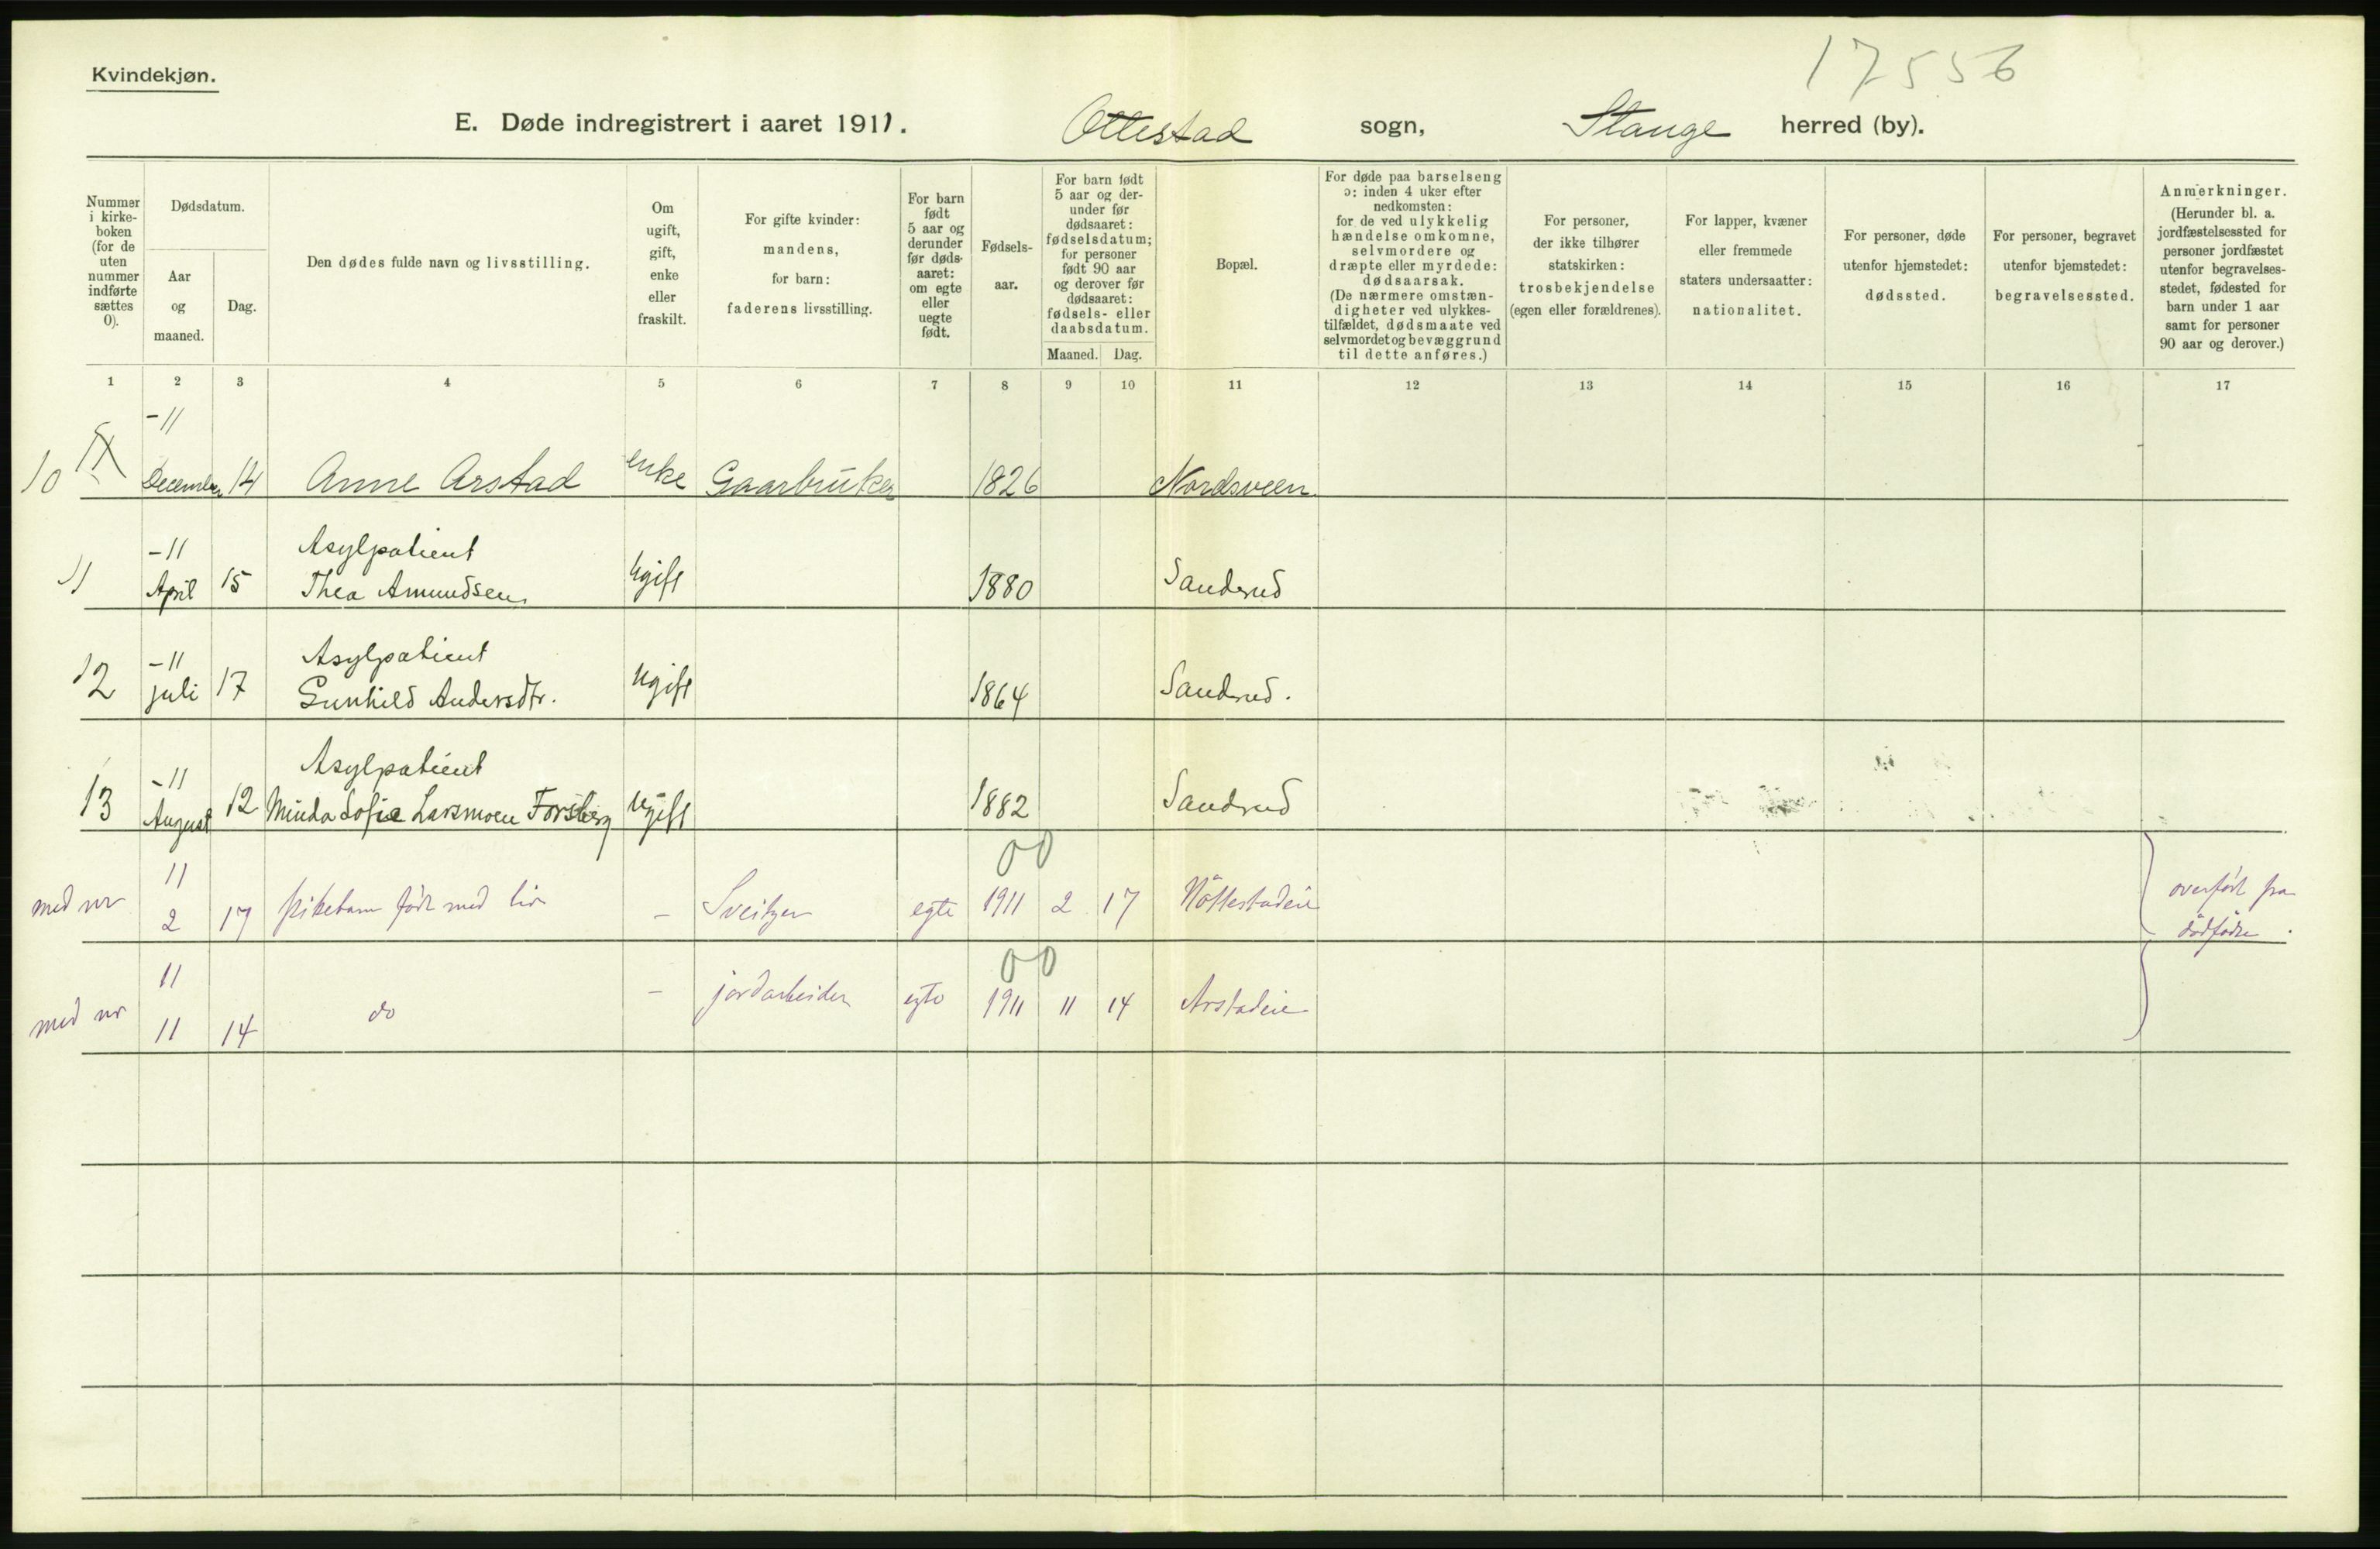 17556
Kvindekjøn.
E. Døde indregistrert i aaret 1911. Ottestad sogn, Stange herred (by).
Nummer i kirke-boken (for de uten nummer indførte sættes 0).
Dødsdatum.
Aar og maaned.
Dag.
Den dødes fulde navn og livsstilling.
Om ugift, gift, enke eller fraskilt.
For gifte kvinder: mandens, for barn: faderens livsstilling.
For barn født 5 aar og derunder før døds-aaret: om egte eller uegte født.
Fødsels-aar.
For barn født 5 aar og der-under før dødsaaret: fødselsdatum; for personer født 90 aar og derover før dødsaaret: fødsels- eller daabsdatum.
Maaned. Dag.
Bopæl.
For døde paa barselseng ɔ: inden 4 uker efter nedkomsten: for de ved ulykkelig hændelse omkomne, selvmordere og dræpte eller myrdede: dødsaarsak. (De nærmere omstæn-digheter ved ulykkes-tilfældet, dødsmaate ved selvmordet og bevæggrund til dette anføres.)
For personer, der ikke tilhører statskirken: trosbekjendelse (egen eller forældrenes).
For lapper, kvæner eller fremmede staters undersaatter: nationalitet.
For personer, døde utenfor hjemstedet: dødssted.
For personer, begravet utenfor hjemstedet: begravelsessted.
Anmerkninger. (Herunder bl. a. jordfæstelsessted for personer jordfæstet utenfor begravelses-stedet, fødested for barn under 1 aar samt for personer 90 aar og derover.)
1 2 3 4 5 6 7 8 9 10 11 12 13 14 15 16 17
-11
10 December 14 Anne Arstad enke Gaarbruker 1826 Nordsveen
-11 Asylpatient
11 April 15 Thea Amundsen Ugift 1880 Sanderud
-11 Asylpatient
12 juli 17 Gunhild Andersdtr. Ugift 1864 Sanderud.
-11 Asylpatient
13 August 12 Minda Sofie Larsmoen Forsberg Ugift 1882 Sandrud
11 00
med nr 2 17 pikebarn født med liv - Sveitzer egte 1911 2 17 Nøttestadeie overført fra
dødfødte.
11 00
med nr 11 14 do - jordarbeider egte 1911 11 14 Arstadeie